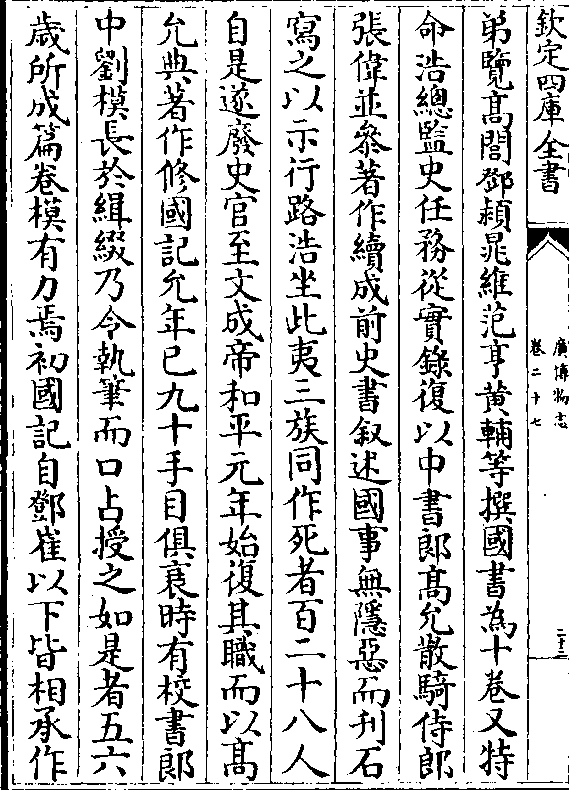 欽定四庫全書
廣博物志
卷二十七
二十三
弟覽高閭鄧穎晁維范亨黄輔等撰國書為十卷又特
命浩總監史任務從實錄復以中書郎高允散騎侍郎
張偉並叅著作續成前史書叙述國事無隱惡而刋石
寫之以示行路浩坐此夷三族同作死者百二十八人
自是遂廢史官至文成帝和平元年始復其職而以高
允典著作修國記允年已九十手目俱衰時有校書郎
中劉模長於緝綴乃令執筆而口占授之如是者五六
歲所成篇卷模有力焉初國記自鄧崔以下皆相承作